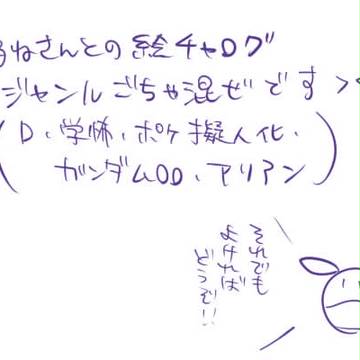 ねさんとの絵チャログ
ジャンルごちゃ混ぜです
(D、学怖、ポケ擬人化、
ガンダムOO、アリアン)
それでも
よければ
どうぞ!!